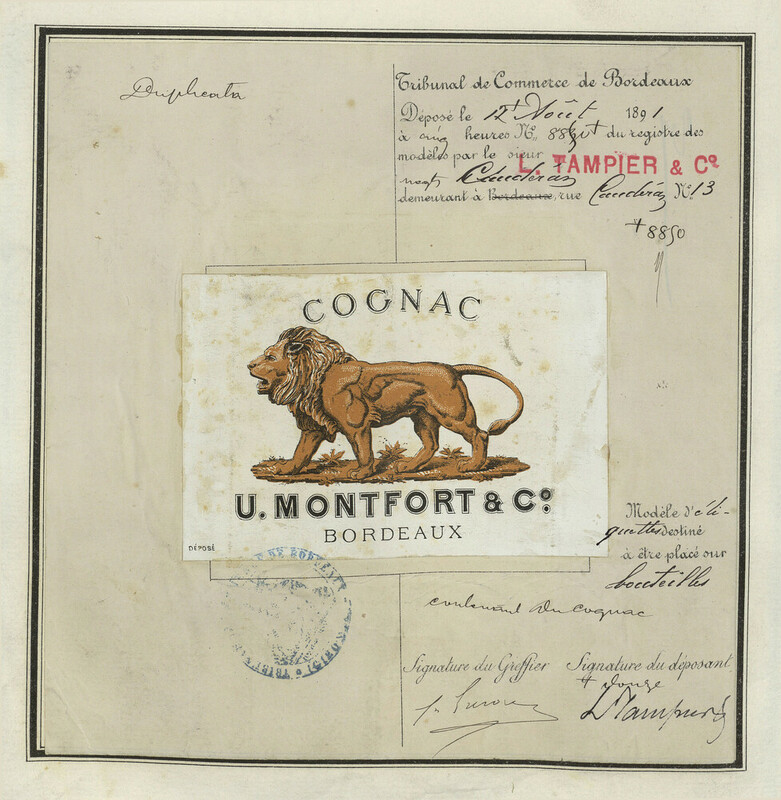 Duplicata
Tribunal de Commerce de Bordeaux
Déposé le 12 Août 1891
à cinq heures No. du registre des
modèles par le sieur L. TAMPIER & Co
negt Caudéran
demeurant à Bordeaux, rue Caudéran No. 13
+ 8850
COGNAC
U. MONTFORT & Co.
BORDEAUX
DÉPOSÉ
Modèle d'éti-
quettes destiné
à être placé sur
bouteilles
contenant du cognac
Signature du Greffier Signature du déposant
+ douze
L Tampier